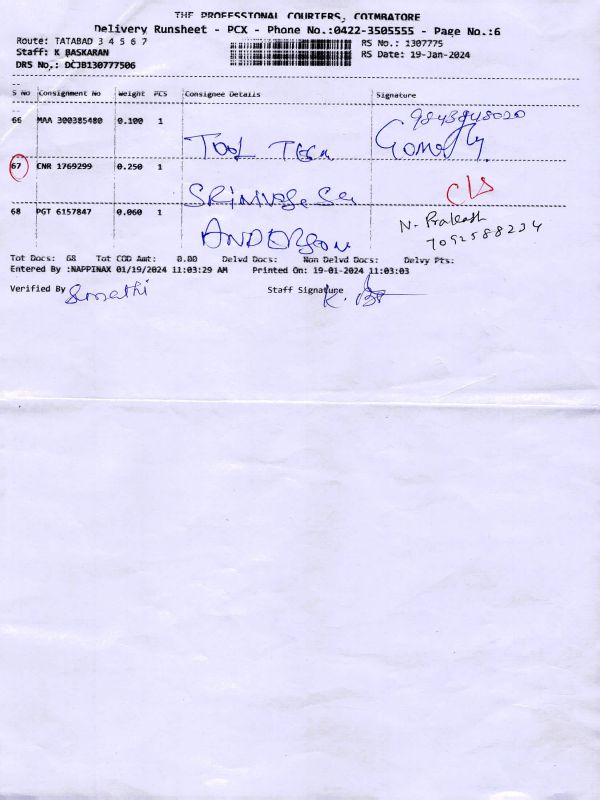 THE PROFESSIONAL COURIERS, COIMBATORE
Delivery Runsheet - PCX - Phone No.:0422-3505555 - Page No.:6
Route: TATABAD 3 4 5 6 7
RS No.: 1307775
Staff: K BASKARAN
RS Date: 19-Jan-2024
DRS No,: DCJB130777506
S No Consignment No Weight PCS Consignee Details Signature
9843848020
66 MAA 300385480 0.100 1
TOOL TECH
67 ENR 1769299 0.250 1
C/S
68 PGT 6157847 0.060 1
N. Prakash
7092588234
ANDERSON
Tot Docs: 68 Tot COD Amt: 0.00 Delvd Docs: Non Delvd Docs: Delvy Pts:
Entered By :NAPPINAX 01/19/2024 11:03:29 AM Printed On: 19-01-2024 11:03:03
Verified By Sumathi Staff Signature